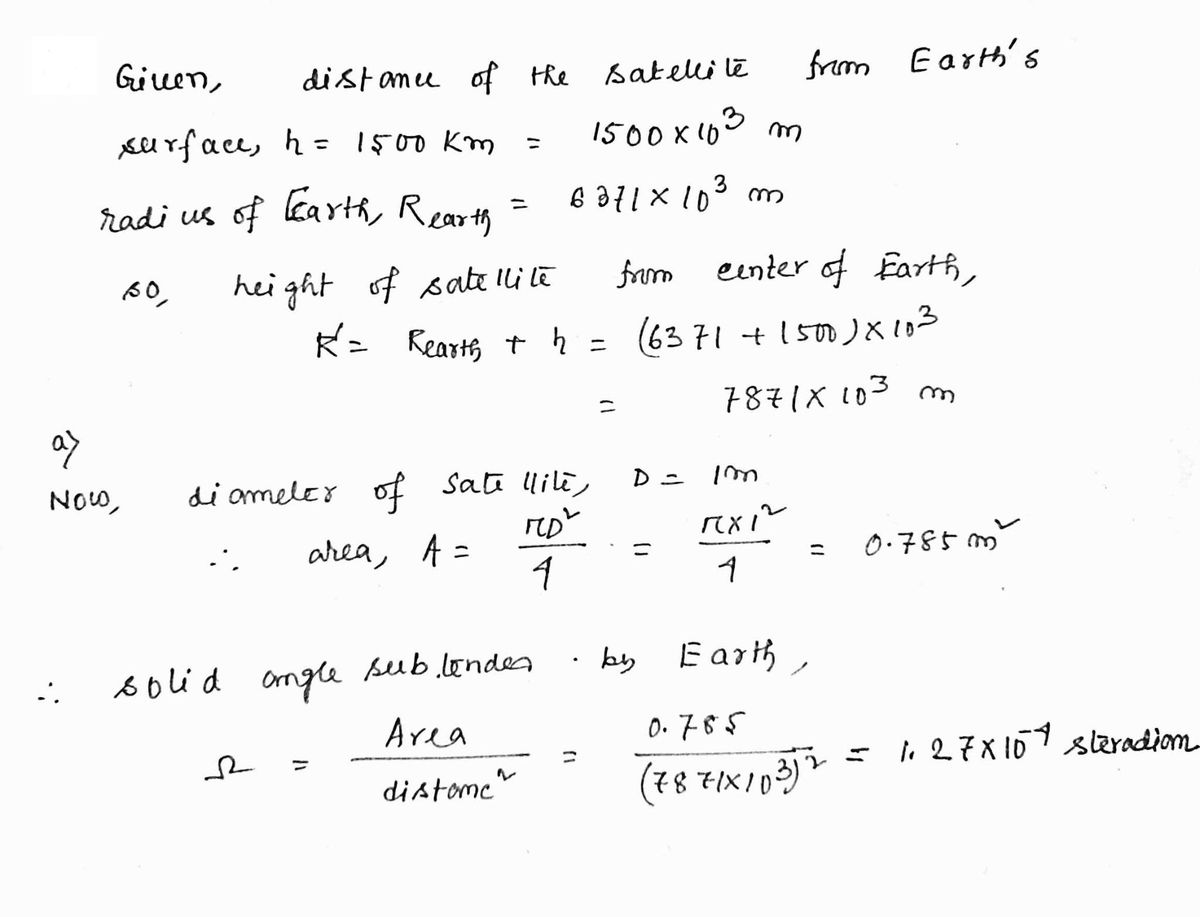 Given, distance of the satellite from Earth's
surface, h = 1500 Km = 1500 × 10³ m
radius of Earth, R_earth = 6371 × 10³ m
so, height of satellite from center of Earth,
R' = R_earth + h = (6371 + 1500) × 10³
= 7871 × 10³ m
a)
Now, diameter of satellite, D = 1m
∴ area, A = πD²/4 = π×1²/4 = 0.785 m²
∴ solid angle subtended by Earth,
Ω = Area/distance² = 0.785/(7871×10³)² = 1.27×10⁻⁴ steradian